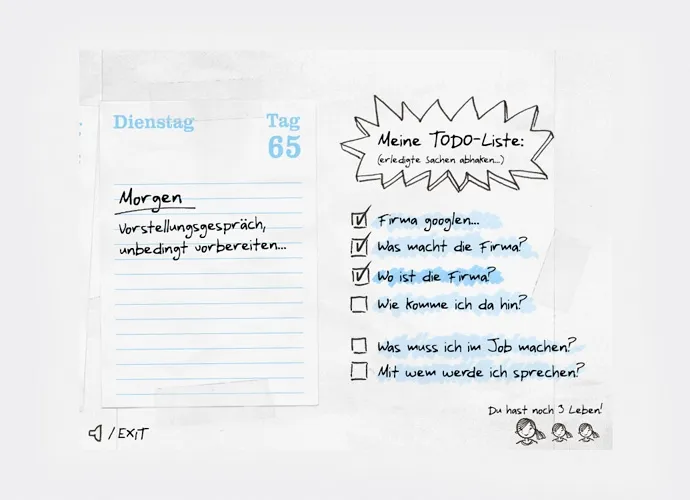 Dienstag
Tag
65
Morgen
Vorstellungsgespräch,
unbedingt vorbereiten...
Meine TODO-Liste:
(erledigte Sachen abhaken...)
Firma googlen...
Was macht die Firma?
Wo ist die Firma?
Wie komme ich da hin?
Was muss ich im Job machen?
Mit wem werde ich sprechen?
Du hast noch 3 Leben!
/ EXIT